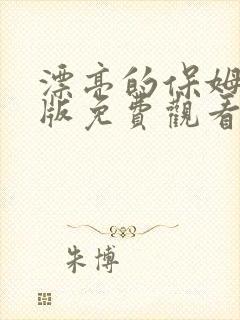 漂亮的保姆
版免費觀看
朱博